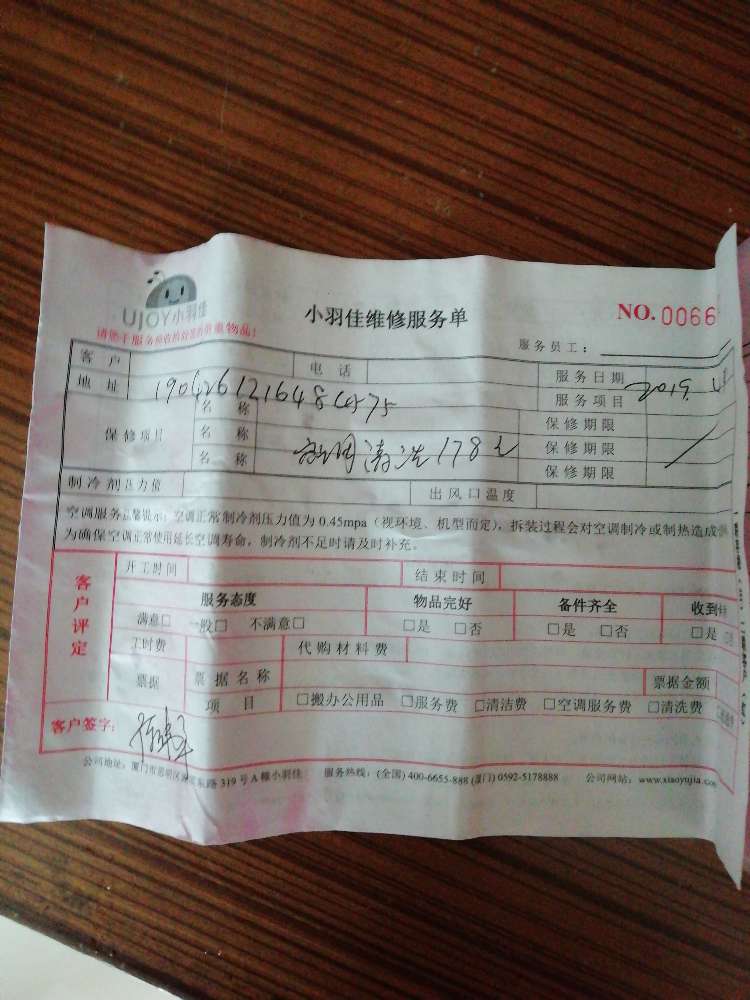 UJOY小羽佳
小羽佳维修服务单
NO. 0066
服务员工：
客户 电话 服务日期 2019.
地址 服务项目
保修项目 名称 保修期限
名称 178元 保修期限
名称 保修期限
制冷剂压力值 出风口温度
空调服务温馨提示：空调正常制冷剂压力值为0.45mpa（视环境、机型而定），拆装过程会对空调制冷或制热造成
为确保空调正常使用延长空调寿命，制冷剂不足时请及时补充。
客户评定
开工时间 结束时间
服务态度 物品完好 备件齐全 收到
满意□ 一般□ 不满意□ □是 □否 □是 □否 □是
工时费 代购材料费
票据 票据名称 票据金额
项目 □搬办公用品 □服务费 □清洁费 □空调服务费 □清洗费
客户签字：
公司地址：厦门市思明区 东路319号A幢小羽佳 服务热线：(全国) 400-6655-888 (厦门) 0592-5178888 公司网站：www.xiaoyujia.co